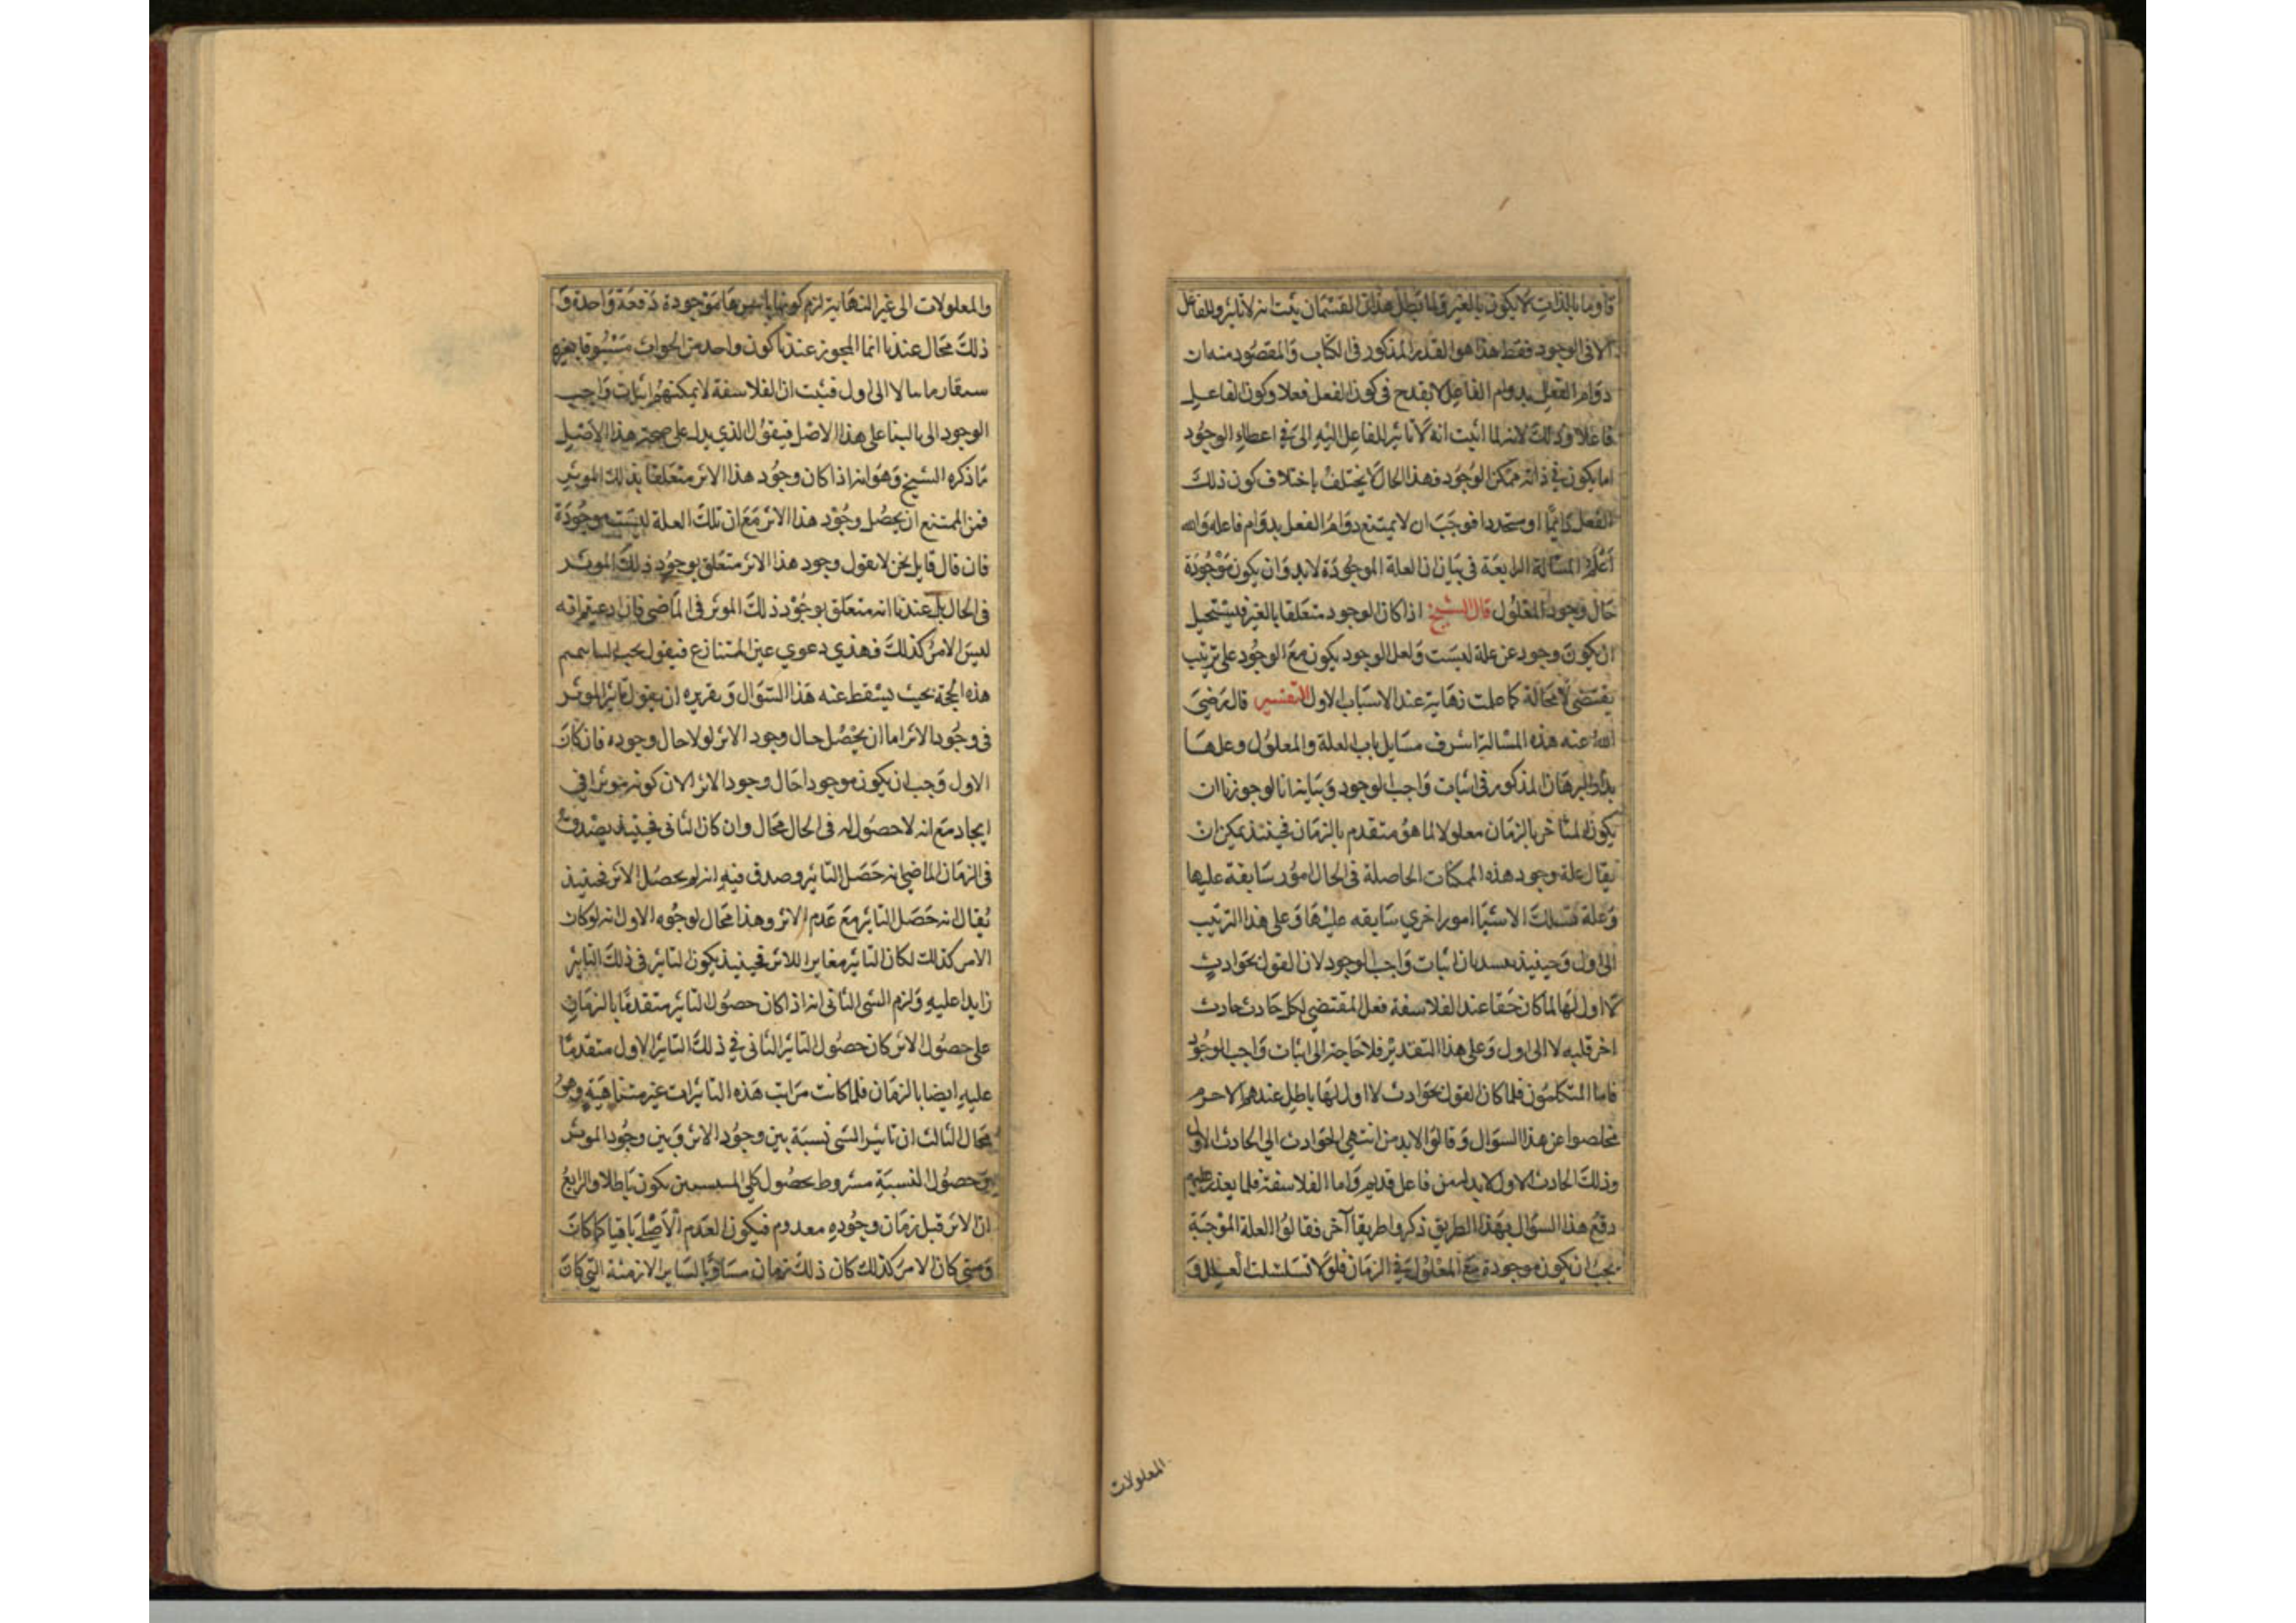 وما بالذات لا يكون بالغير ولما بطل هذان القسمان يثبت انه لا تاثير للفاعل
الا فى الوجود فقط هذا هو القدر المذكور فى الكتاب والمقصود منه ان
دوام الفعل بدوام الفاعل لا يقدح فى كون الفعل فعلا وكون الفاعل
فاعلا وذلك لانه لما اثبت انه لا تاثير للفاعل الا فى اعطاء الوجود
اما يكون فى ذاته ممكن الوجود فهذا الحال لا يختلف باختلاف كون ذلك
الفعل دائما او متجددا فوجب ان لا يمتنع دوام الفعل بدوام فاعله والله
اعلم المسالة الرابعة فى بيان ان العلة الموجودة لابد وان يكون موجودة
حال وجود المعلول قال الشيخ اذا كان الوجود متعلقا بالغير فيستحيل
ان يكون وجود عن علة ليست ولعل الوجود يكون مع الوجود على ترتيب
يقتضى لا محالة كما علمت نهاية عند الاسباب الاول التفسير قال رضى
الله عنه هذه المسالة اشرف مسايل باب العلة والمعلول وعلها
البرهان المذكور فى اثبات واجب الوجود وبيانه انا لو جوزنا ان
يكون المتاخر بالزمان معلولا لما هو متقدم بالزمان فحينئذ يمكن ان
يقال علة وجود هذه الممكنات الحاصلة فى الحال امور سابقة عليها
وعلة تلك الاشيا امور اخري سابقه عليها وعلى هذا الترتيب
الى اول وحينيذ ينسد باب اثبات واجب الوجود لان القول بحوادث
لا اول لها لما كان حقا عند الفلاسفة فعل المقتضى لكل حادث حادث
اخر قبله لا الى اول وعلى هذا التقدير فلا حاجة الى اثبات واجب الوجود
فاما المتكلمون فلما كان القول بحوادث لا اول لها باطل عندهم لا جرم
تخلصوا عن هذا السوال وقالوا لابد من انتهى الحوادث الى الحادث الاول
وذلك الحادث الاول لابد له من فاعل قديم واما الفلاسفة فلما يعذر عليهم
دفع هذا السوال بهذا الطريق ذكروا طريقا آخر فقالوا العلة الموجبة
يجب ان يكون موجودة مع المعلول فى الزمان فلو لا تسلسلت العلل و
المعلولات
والمعلولات الى غير النهاية لزم كونها باسرها موجودة دفعة واحدة و
ذلك محال عندنا انما المجوز عندنا كون واحد من الحوادث مسبوقا بغيره
لا الى اول فثبت ان الفلاسفة لا يمكنهم اثبات واجب
الوجود الى بالبنا على هذا الاصل فيقول الذي يدل على صحة هذا الاصل
ما ذكره الشيخ وهو انه اذا كان وجود هذا الاثر متعلقا بذلك الموثر
فمن الممتنع ان يحصل وجود هذا الاثر مع ان تلك العلة ليست موجودة
فان قال قايل نحن لا نقول وجود هذا الاثر متعلق بوجود ذلك الموثر
فى الحال بل عندنا انه متعلق بوجود ذلك الموثر فى الماضى فان ادعيتم انه
ليس الامر كذلك فهذي دعوي عين المتنازع فيقول يجب
هذه الحجة بحيث يسقط عنه هذا السوال وتقريره ان يقول تاثير الموثر
فى وجود الاثر اما ان يحصل حال وجود الاثر او لا حال وجوده فان كان
الاول وجب ان يكون موجودا حال وجود الاثر الان كونه موثرا فى
ايجاد مع انه لا حصول له فى الحال محال وان كان الثانى فحينيذ يصدق
فى الزمان الماضى انه حصل التاثير وصدق فيه انه لم يحصل الاثر فحينيذ
يقال انه حصل التاثير مع عدم الاثر وهذا محال لوجوه الاول انه لو كان
الامر كذلك لكان التاثير مغايرا للاثر فحينيذ يكون التاثير فى ذلك التاثير
زايدا عليه ولزم الشى الثانى انه اذا كان حصول التاثير متقدما بالزمان
على حصول الاثر كان حصول التاثير الثانى فى ذلك التاثير الاول متقدما
عليه ايضا بالزمان فلما كانت مراتب هذه التاثيرات غير متناهية وهو
محال الثالث ان تاثير الشى نسبة بين وجود الاثر وبين وجود الموثر
حصول النسبة مشروط بحصول كلى يكون باطلا والرابع
ان الاثر قبل زمان وجوده معدوم فيكون العدم الاصلى باقيا كما كان
ومتى كان الامر كذلك كان ذلك زمان مساويا لساير الازمنة التى كان